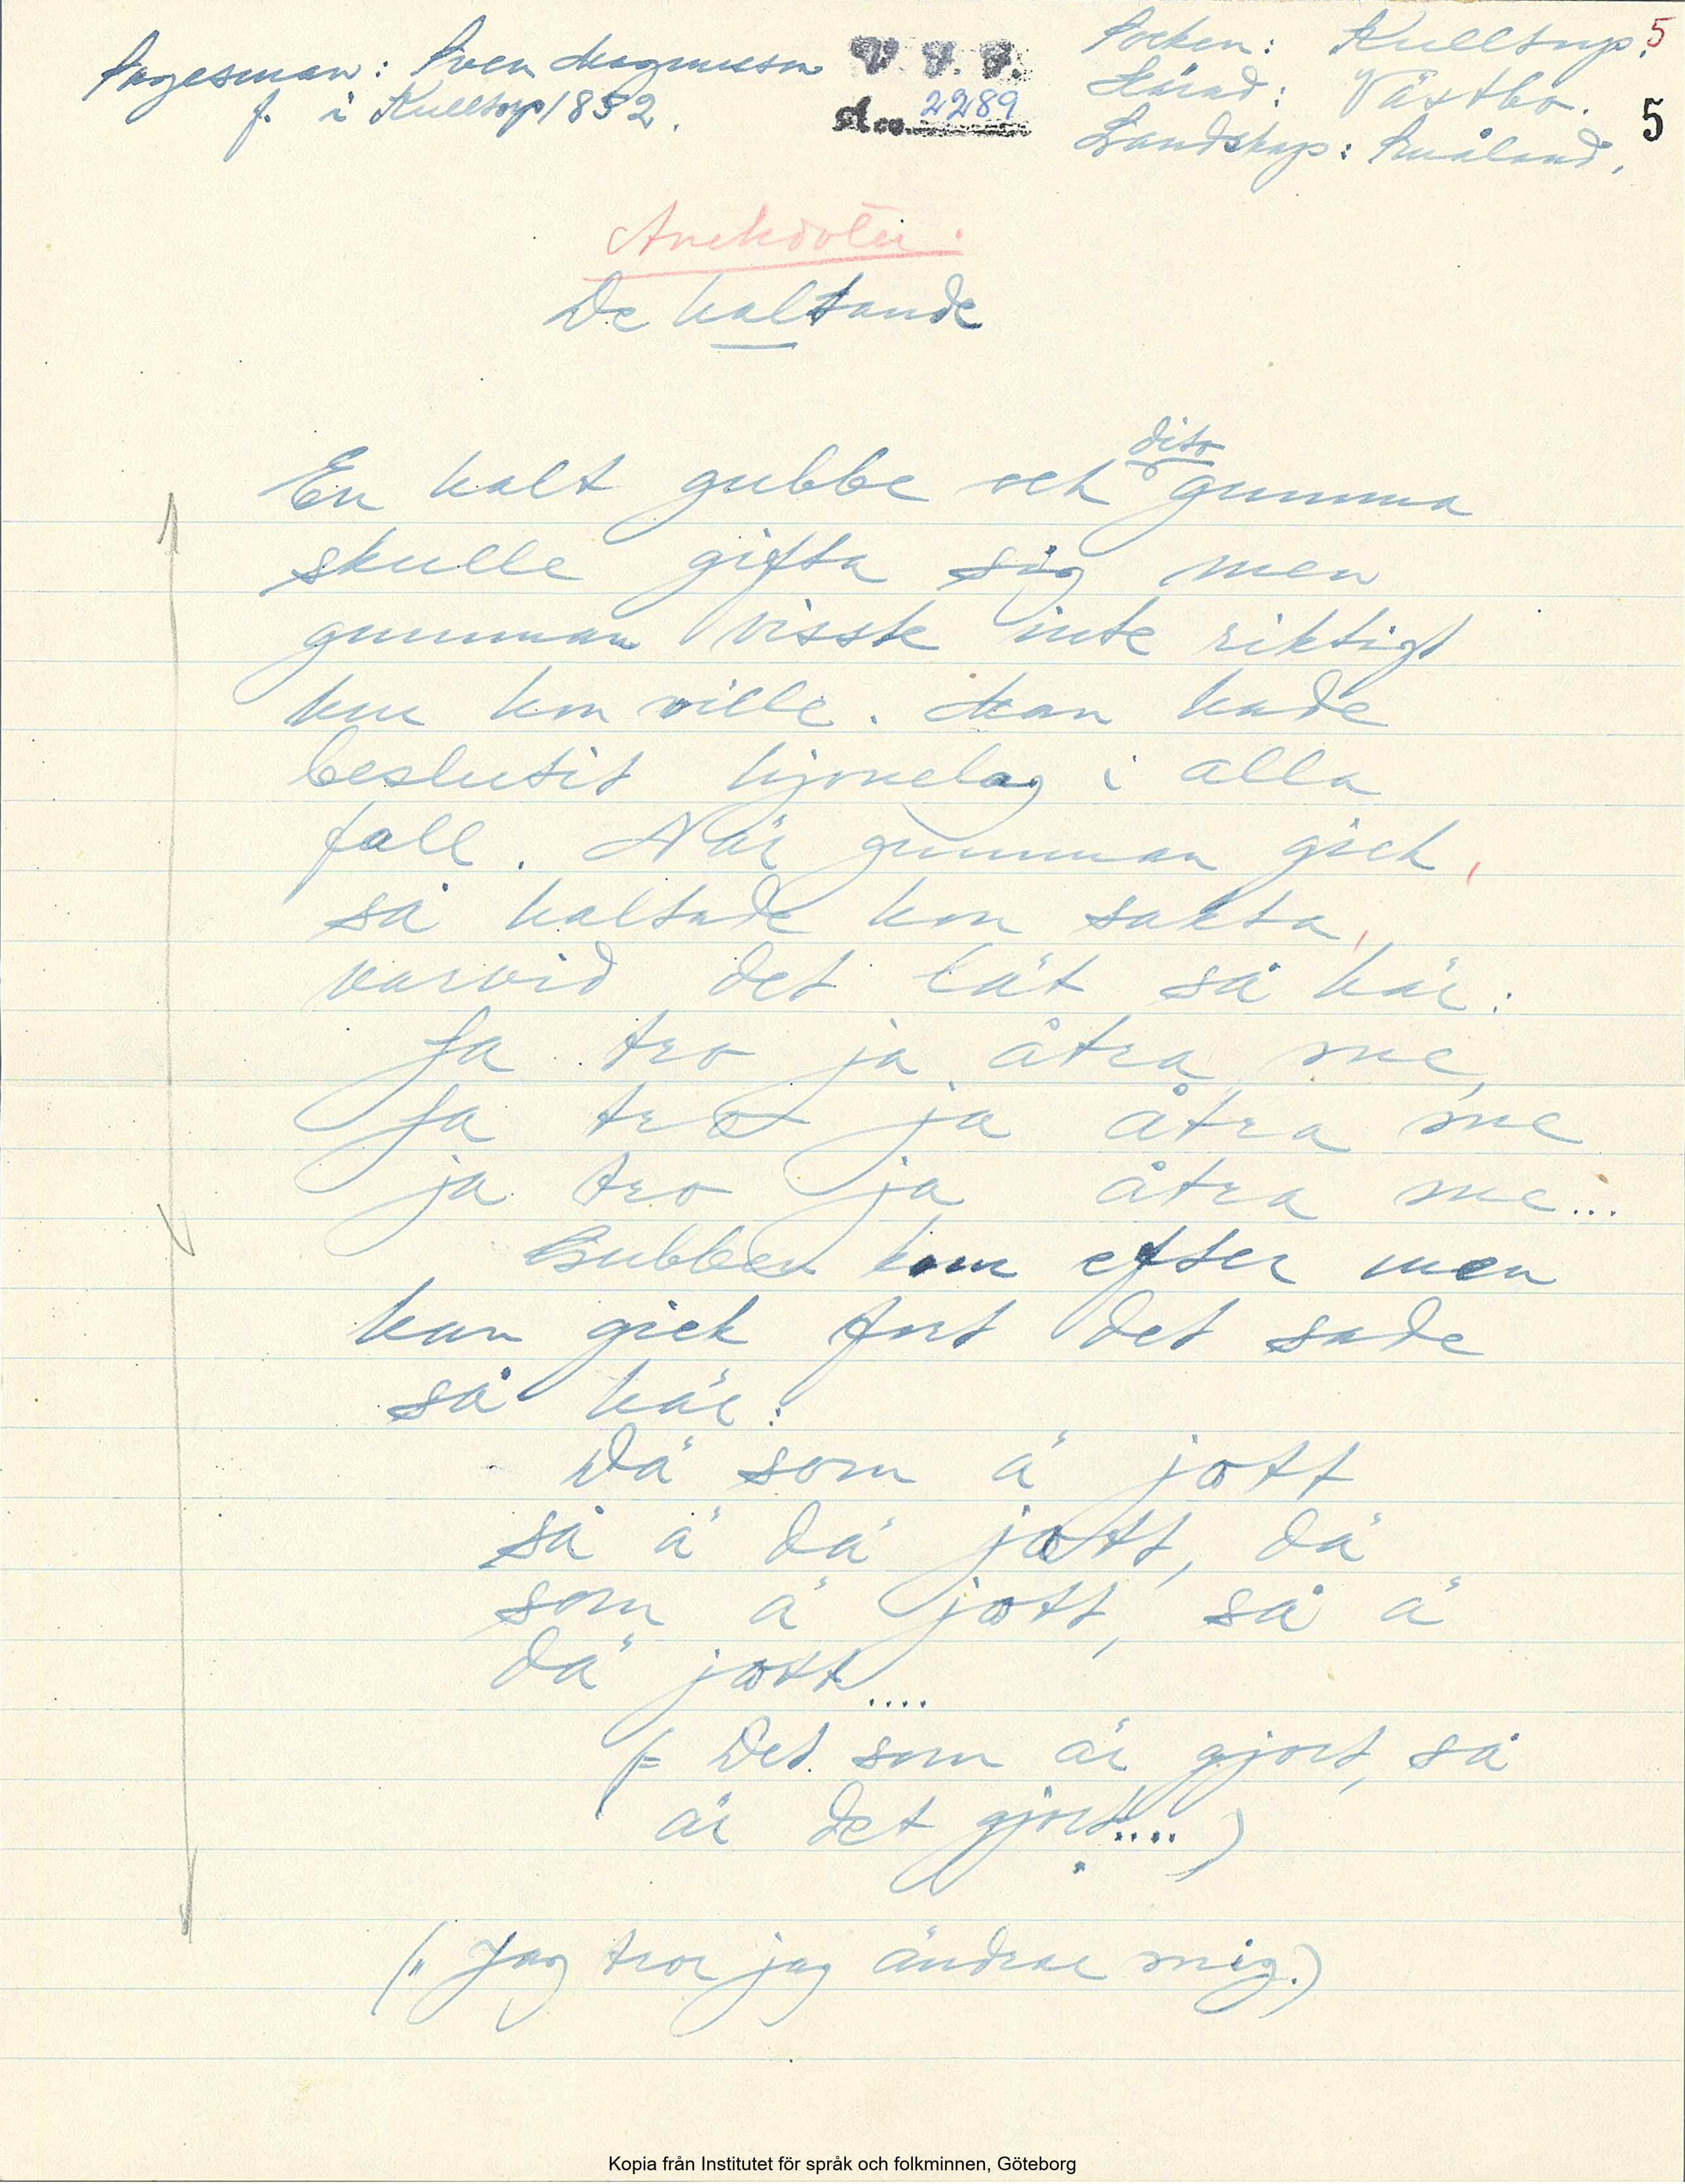 Sagesman: Sven Magnusson
f. i Kulltorp 1852.
V. F. F.
Acc. 2289
Socken: Kulltorp.
Härad: Västbo.
Landskap: Småland.
5
5
Anekdoter.
De haltande
En halt gubbe och dito gumma
skulle gifta sig men
gumman visste inte riktigt
hur hon ville. Man hade
beslutit hjonelag i alla
fall. När gumman gick,
så haltade hon sakta,
varvid det lät så här:
Ja tro ja åtra me,
Ja tro ja åtra me
ja tro ja åtra me...
Gubben kom efter men
han gick fort det sade
så här:
Dä som ä jott
så ä dä jott, dä
som ä jott, så ä
dä jott....
(= Det som är gjort, så
är det gjort....)
(" Jag tror jag ändrar mig.)
Kopia från Institutet för språk och folkminnen, Göteborg